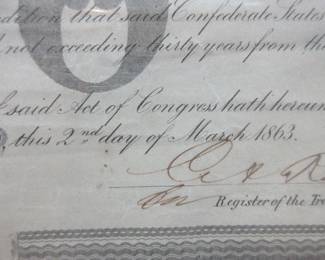 dition that said Confederate States
not exceeding thirty years from the
said Act of Congress hath hereun
this 2nd day of March 1863.
Register of the Tre